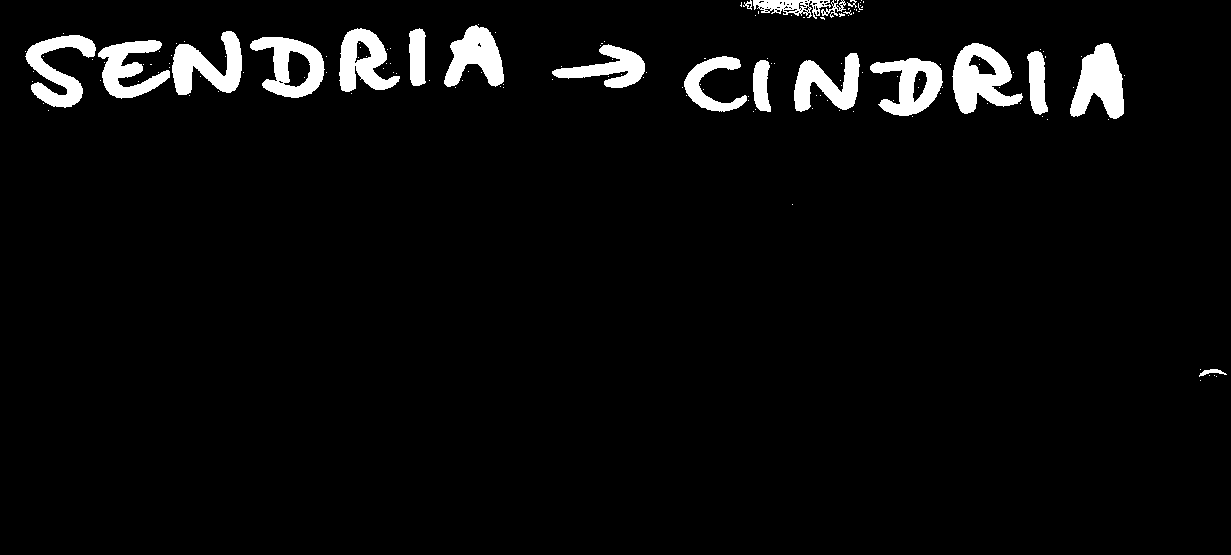 SENDRIA → CINDRIA